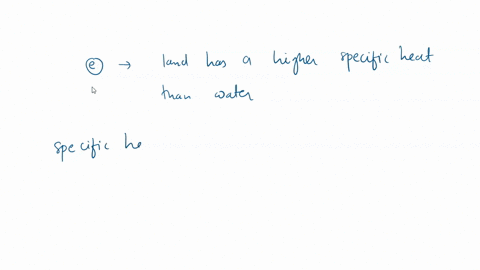 e → land has a higher specific heat
than water
specific he